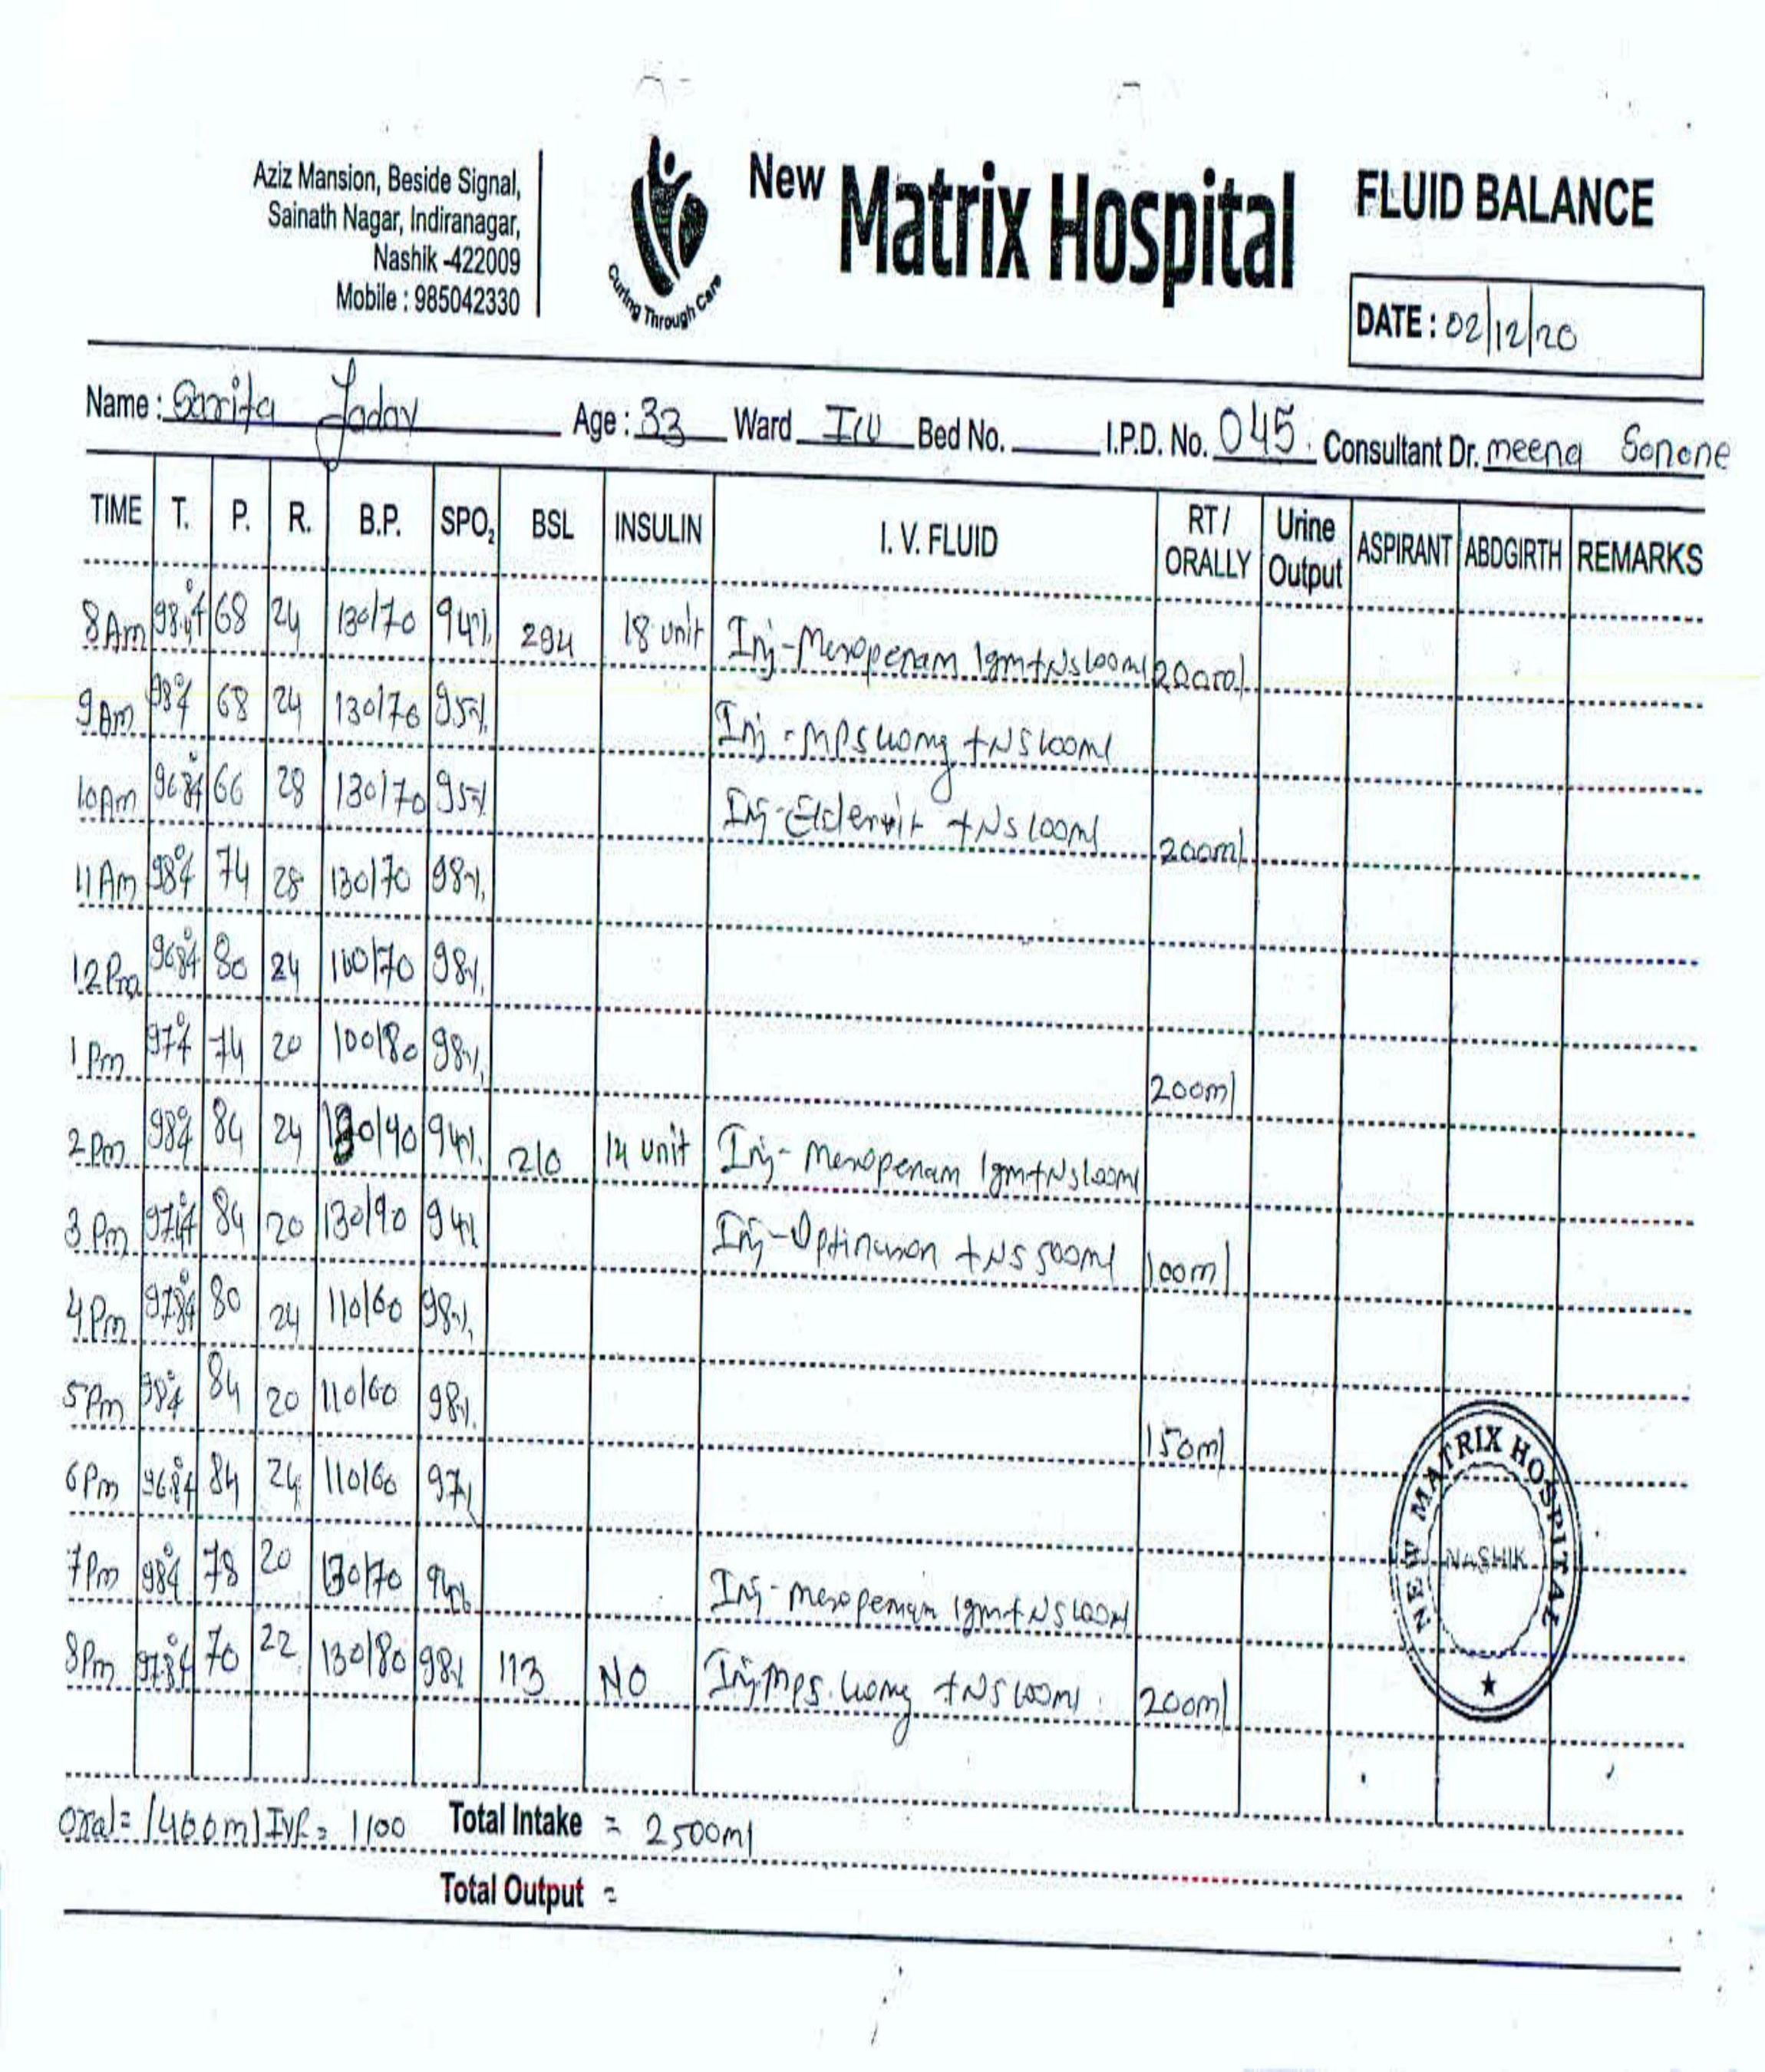 Aziz Mansion, Beside Signal,
Sainath Nagar, Indiranagar,
Nashik -422009
Mobile : 985042330
Curing Through Care
New Matrix Hospital
FLUID BALANCE
DATE : 02/12/20
Name : Sarita Jadav Age : 33 Ward ICU Bed No. I.P.D. No. 045. Consultant Dr. meena Sonone
TIME T. P. R. B.P. SPO2 BSL INSULIN I. V. FLUID RT / ORALLY Urine Output ASPIRANT ABDGIRTH REMARKS
8 Am 98.4°f 68 24 130/70 94% 294 18 unit Inj-Meropenam 1gm+Ns100ml 200ml
9 Am 98°f 68 24 130/70 95% Inj-MPS 40mg +NS100ml
10Am 96.8°f 66 28 130/70 95% Inj-Eldervit +NS100ml 200ml
11 Am 98°f 74 28 130/70 98%
12 Pm 96.8°f 80 24 100/70 98%
1 Pm 97°f 74 20 100/80 98% 200ml
2 Pm 98°f 84 24 94% 210 14 unit Inj-Meropenam 1gm+Ns100ml
3 Pm 97.4°f 84 20 130/90 94% Inj-Optineuron +NS 500ml 100ml
4 Pm 97.8°f 80 24 110/60 98%
5 Pm 98°f 84 20 110/60 98% 150ml
6 Pm 96.8°f 84 24 110/60 97%
7 Pm 98°f 78 20 130/70 Inj-meropenam 1gm+NS100ml
8 Pm 97.8°f 70 22 130/80 98% 113 NO Inj MPS. 40mg +NS100ml 200ml
Oral= 1400ml IVF= 1100 Total Intake = 2500ml
Total Output =
NEW MATRIX HOSPITAL
NASHIK